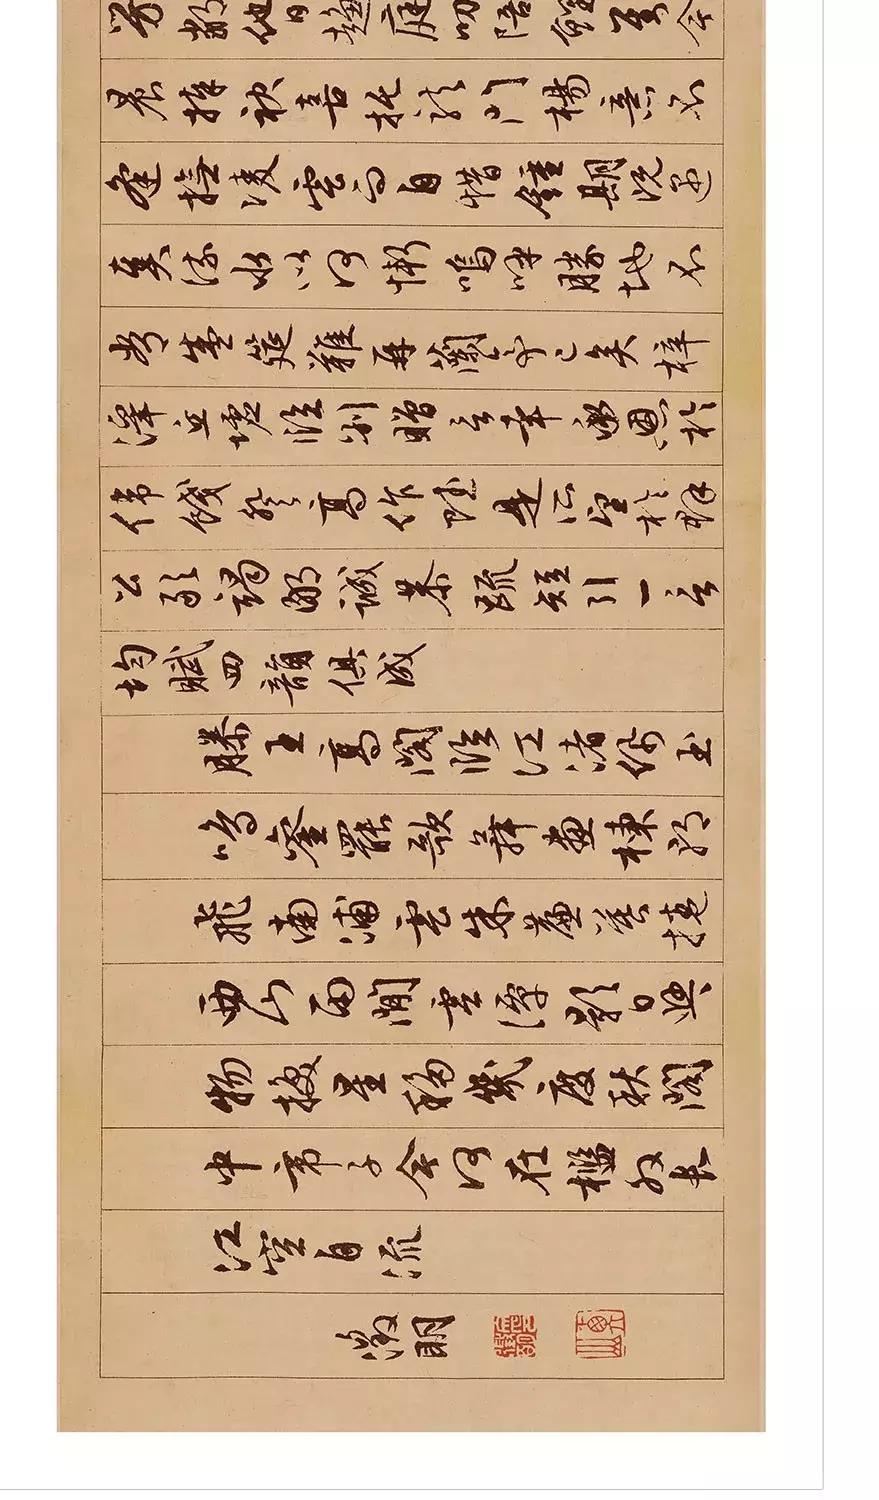 芳鄰他日趨庭叨陪鯉對今
晨捧袂喜托龍門楊意不
逢撫凌雲而自惜鍾期既遇
奏流水以何慚嗚呼勝地不
常盛筵難再蘭亭已矣梓
澤丘墟臨別贈言幸承恩於
偉餞登高作賦是所望於群
公敢竭鄙誠恭疏短引一言
均賦四韻俱成
滕王高閣臨江渚佩玉
鳴鑾罷歌舞畫棟朝
飛南浦雲朱簾暮捲
西山雨閒雲潭影日悠悠
物換星移幾度秋閣
中帝子今何在檻外長
江空自流
徵明